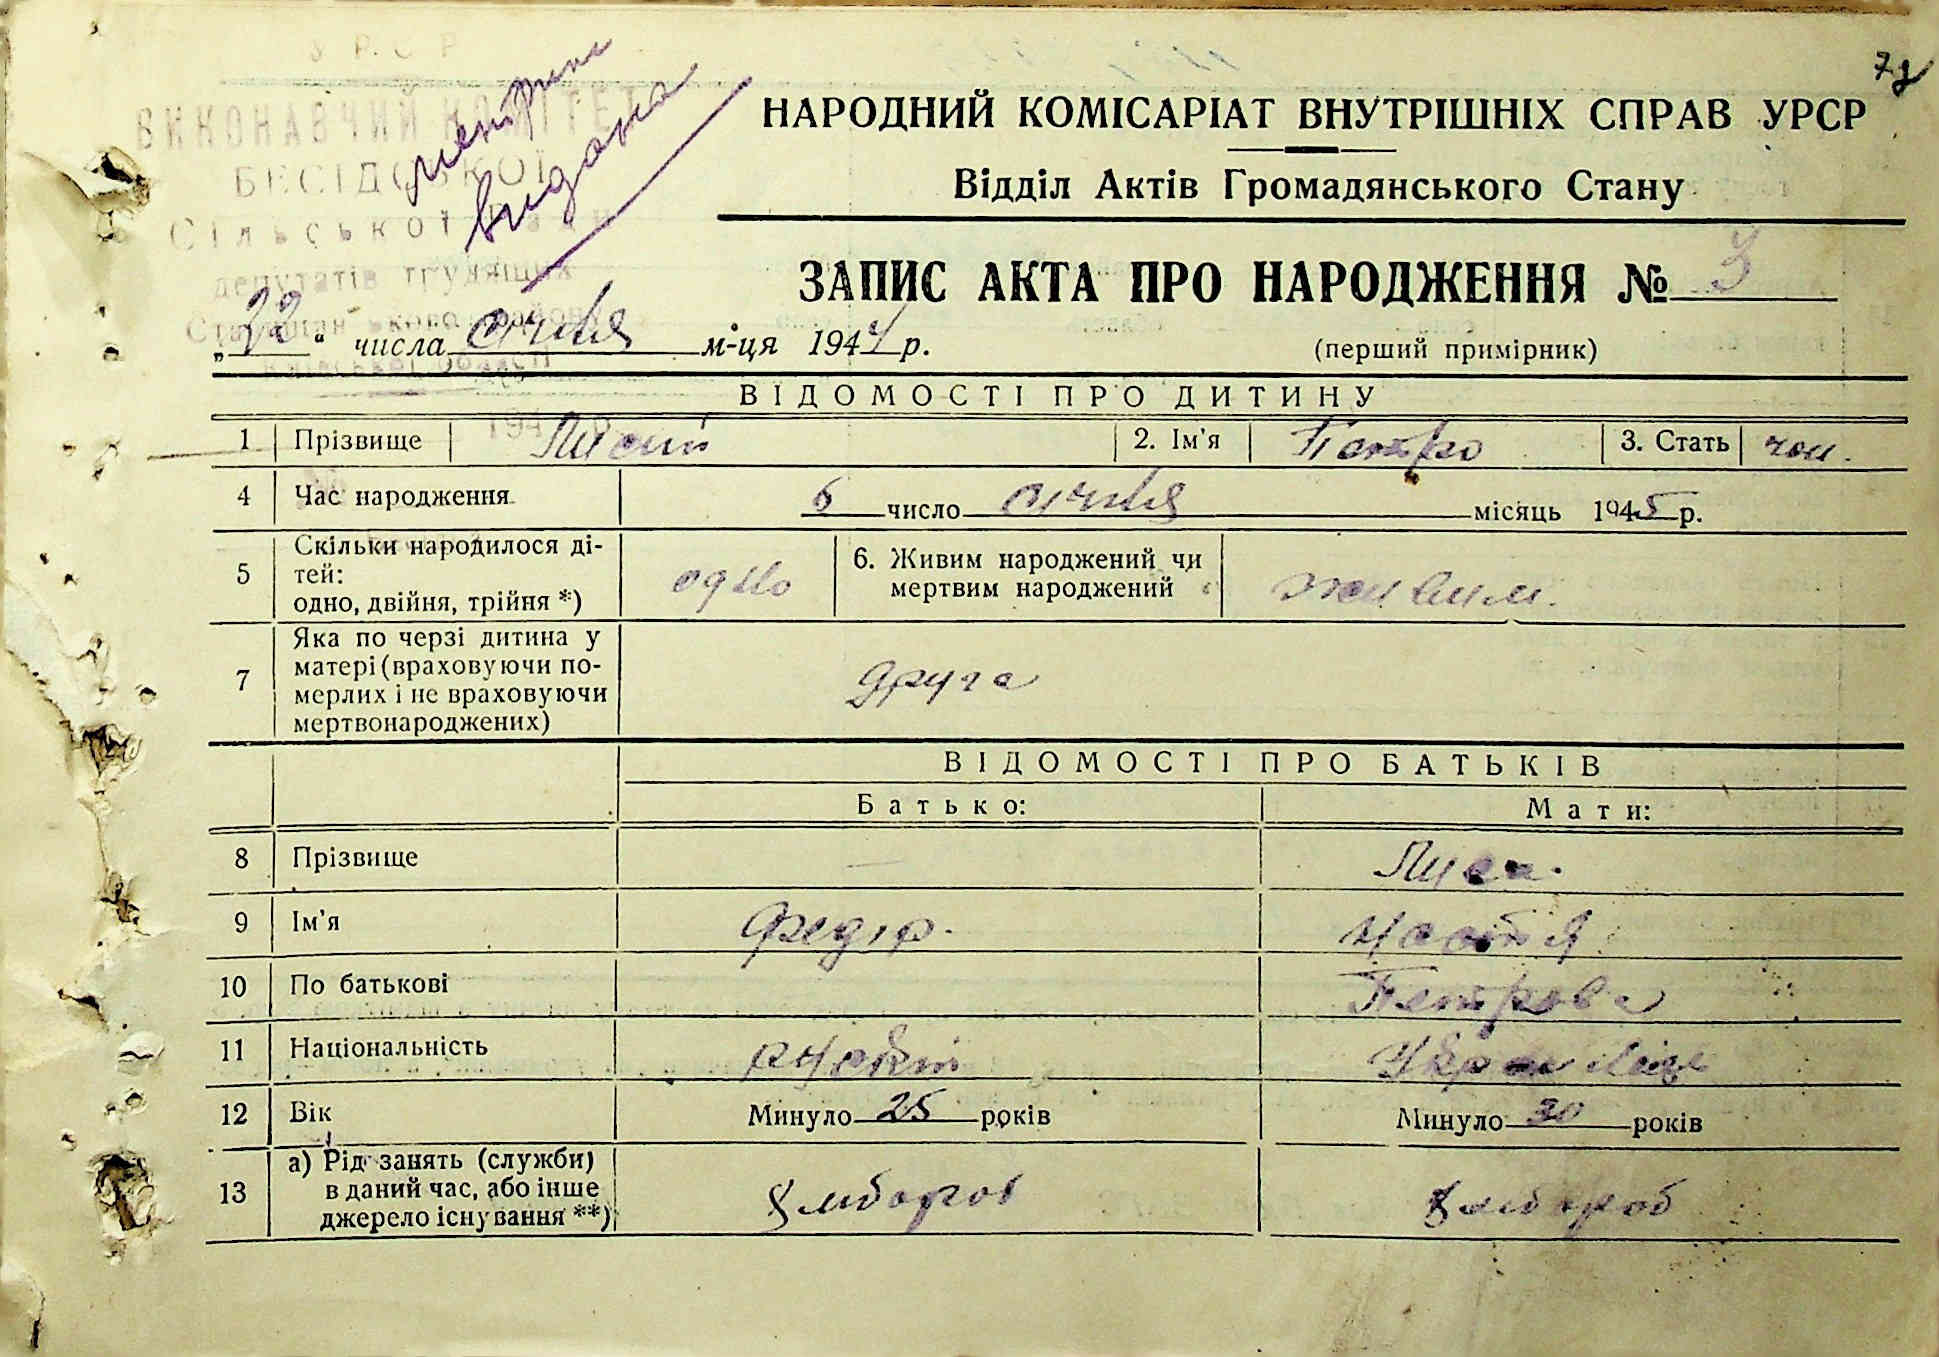 У Р С Р
ВИКОНАВЧИЙ КОМІТЕТ
БЕСІДСЬКОЇ
Сільської Ради
депутатів трудящих
Київської області
194
метрика
видана
7
НАРОДНИЙ КОМІСАРІАТ ВНУТРІШНІХ СПРАВ УРСР
Відділ Актів Громадянського Стану
ЗАПИС АКТА ПРО НАРОДЖЕННЯ № 3
„22“ числа січня м-ця 1944 р.
(перший примірник)
ВІДОМОСТІ ПРО ДИТИНУ
1 Прізвище Лисий 2. Ім'я Петро 3. Стать чол.
4 Час народження 6 число січня місяць 1945 р.
5 Скільки народилося ді-
тей:
одно, двійня, трійня *) одно 6. Живим народжений чи
мертвим народжений живим.
7 Яка по черзі дитина у
матері (враховуючи по-
мерлих і не враховуючи
мертвонароджених) друга
ВІДОМОСТІ ПРО БАТЬКІВ
Батько: Мати:
8 Прізвище — Лиса.
9 Ім'я Федір. Настя
10 По батькові Петрова
11 Національність руський Українка
12 Вік Минуло 25 років Минуло 30 років
13 а) Рід занять (служби)
в даний час, або інше
джерело існування **) хлібороб хлібороб